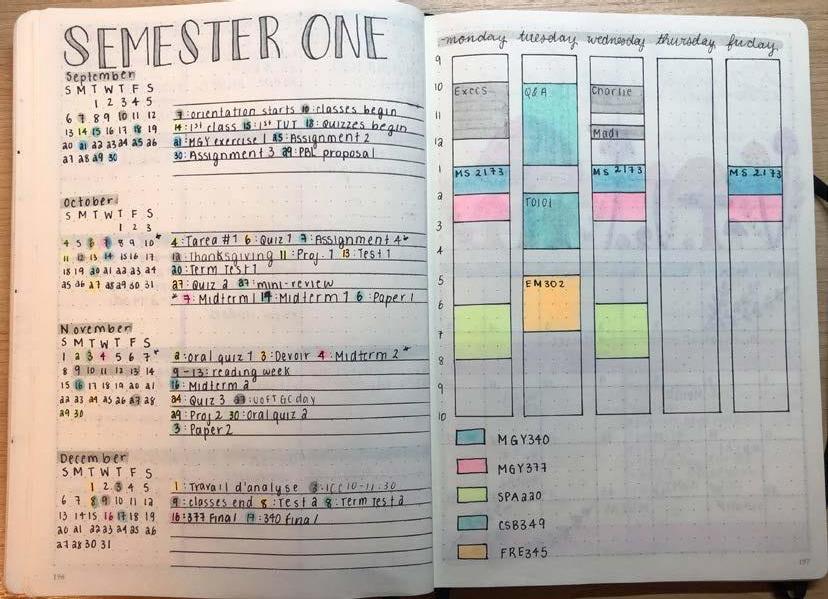 SEMESTER ONE
September
S M T W T F S
1 2 3 4 5
6 7 8 9 10 11 12
13 14 15 16 17 18 19
20 21 22 23 24 25 26
27 28 29 30
7: orientation starts 10: classes begin
14: 1st class 15: 1st TUT 18: Quizzes begin
21: MGY exercise 1 25: Assignment 2
30: Assignment 3 29: PBL proposal
October
S M T W T F S
1 2 3
4 5 6 7 8 9 10*
11 12 13 14 15 16 17
18 19 20 21 22 23 24
25 26 27 28 29 30 31
4: Tarea #1 6: Quiz 1 7: Assignment 4*
12: Thanksgiving 11: Proj. 1 13: Test 1
20: Term Test 1
27: Quiz 2 27: mini-review
* 7: Midterm 1 14: Midterm 1 6: Paper 1
November
S M T W T F S
1 2 3 4 5 6 7*
8 9 10 11 12 13 14
15 16 17 18 19 20 21
22 23 24 25 26 27 28
29 30
2: oral quiz 1 3: Devoir 4: Midterm 2*
9-13: reading week
16: Midterm 2
24: Quiz 3 27: UOFT GC day
29: Proj 2 30: Oral quiz 2
3: Paper 2
December
S M T W T F S
1 2 3 4 5
6 7 8 9 10 11 12
13 14 15 16 17 18 19
20 21 22 23 24 25 26
27 28 30 31
1: Travail d'analyse 3: ICC 10-11:30
9: classes end 8: Test 2 8: Term Test 2
16: 377 Final 17: 340 Final
196
monday tuesday wednesday thursday friday
9
10 Execs Q&A Charlie
11
12 Madi
1 MS 2173 MS 2173 MS 2173
2 TO101
3
4
5 EM302
6
7
8
9
10
MGY340
MGY377
SPA220
CSB349
FRE345
197